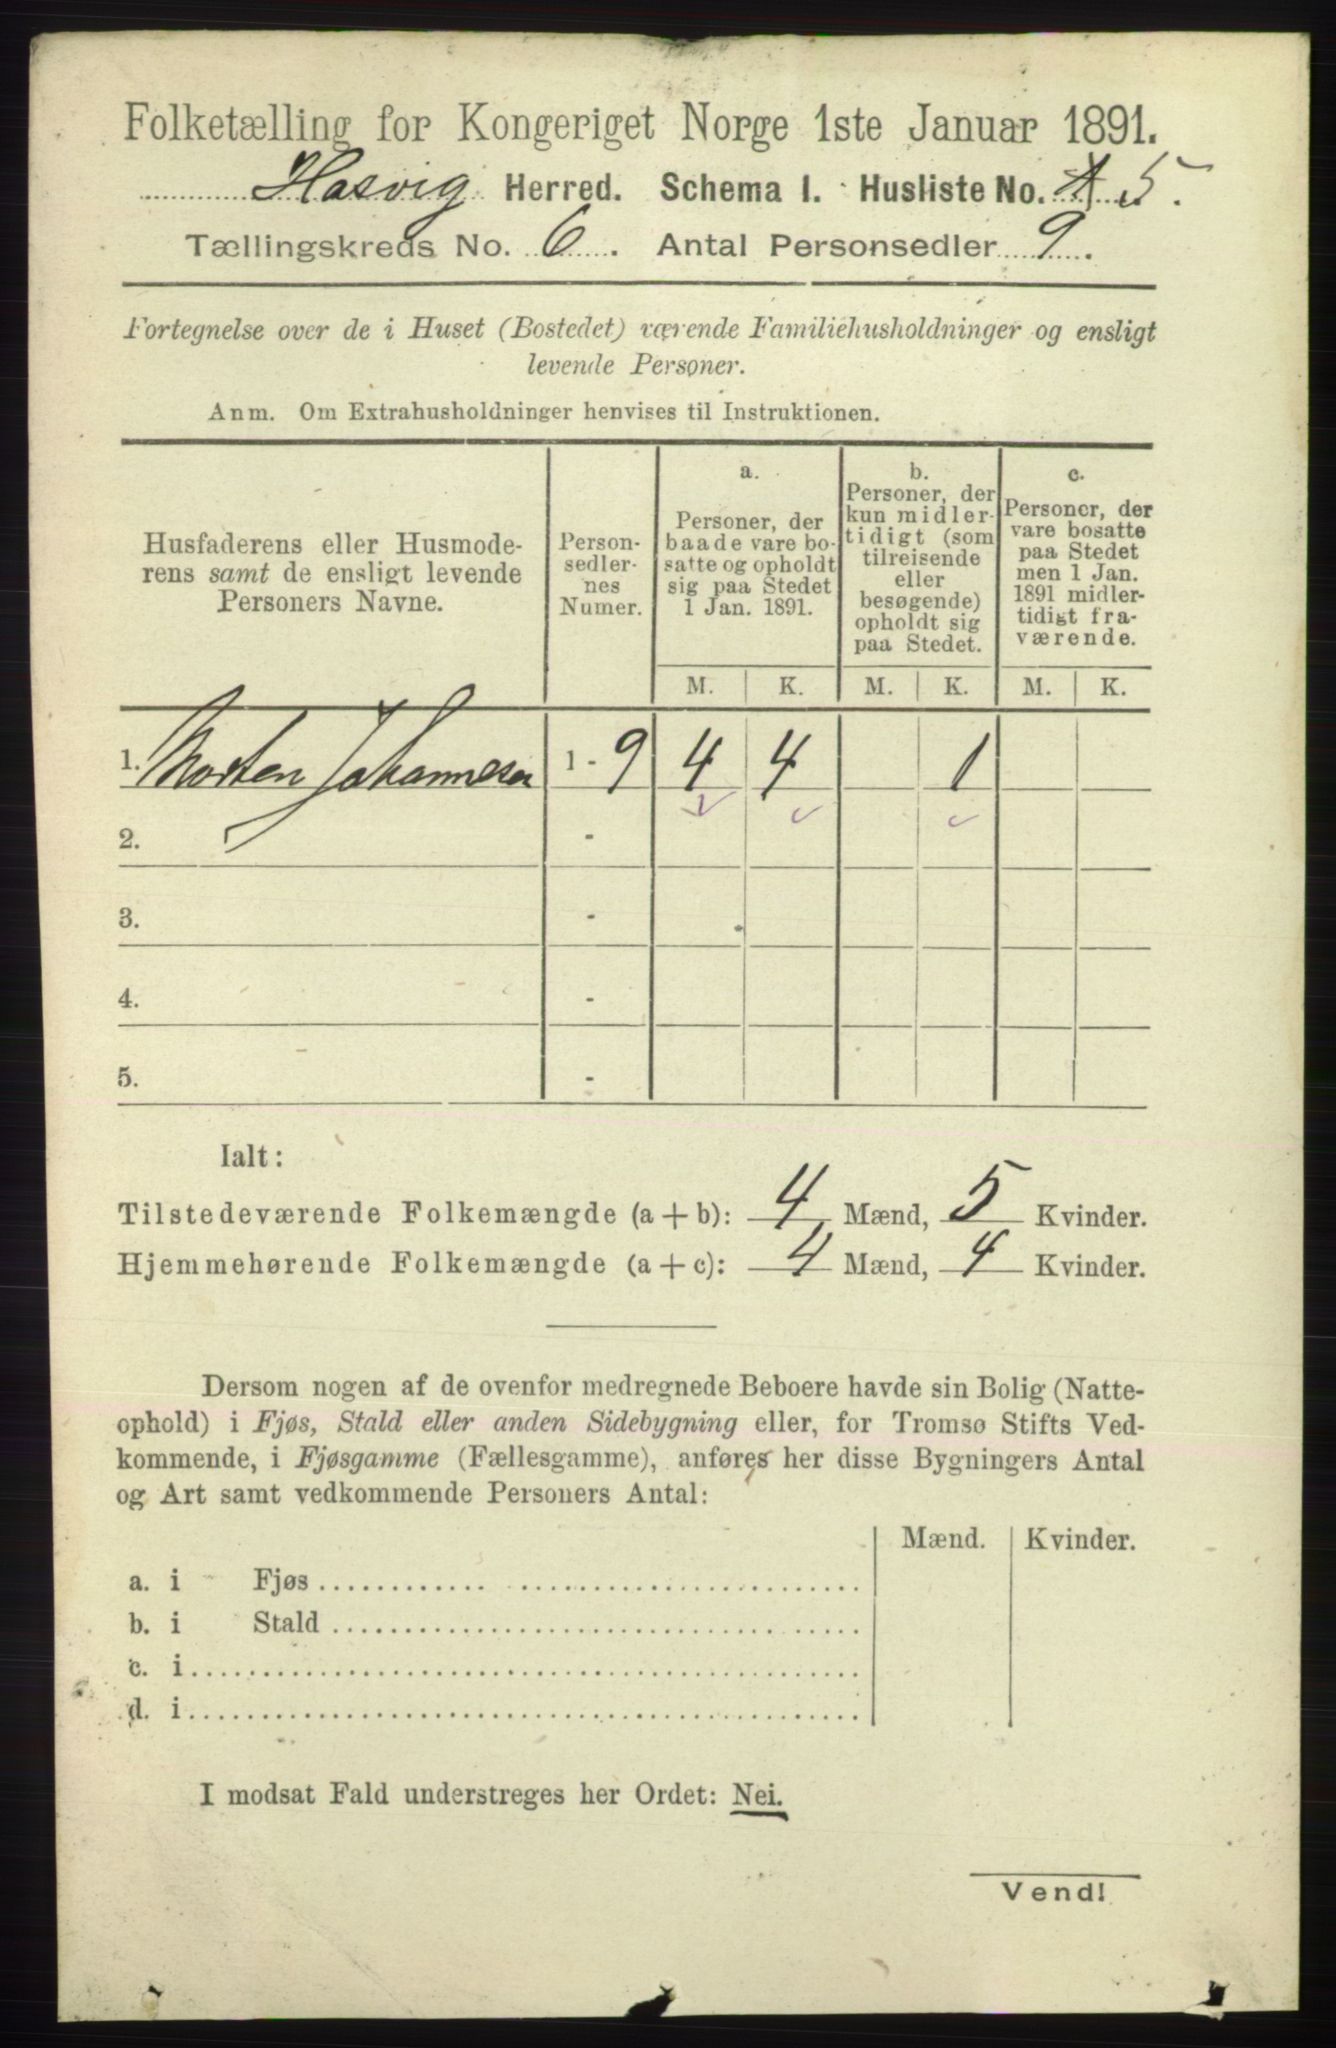 Folketælling for Kongeriget Norge 1ste Januar 1891.
Hasvig Herred. Schema I. Husliste No. 5.
Tællingskreds No. 6. Antal Personsedler 9.
Fortegnelse over de i Huset (Bostedet) værende Familiehusholdninger og ensligt
levende Personer.
Anm. Om Extrahusholdninger henvises til Instruktionen.
Husfaderens eller Husmode-
rens samt de ensligt levende
Personers Navne.
Person-
sedler-
nes
Numer.
a.
Personer, der
baade vare bo-
satte og opholdt
sig paa Stedet
1 Jan. 1891.
b.
Personer, der
kun midler-
tidigt (som
tilreisende
eller
besøgende)
opholdt sig
paa Stedet.
c.
Personer, der
vare bosatte
paa Stedet
men 1 Jan.
1891 midler-
tidigt fra-
værende.
M. K. M. K. M. K.
1. Morten Johannesen 1 - 9 4 4 1
2. -
3. -
4. -
5. -
Ialt:
Tilstedeværende Folkemængde (a+b): 4 Mænd, 5 Kvinder.
Hjemmehørende Folkemængde (a+c): 4 Mænd, 4 Kvinder.
Dersom nogen af de ovenfor medregnede Beboere havde sin Bolig (Natte-
ophold) i Fjøs, Stald eller anden Sidebygning eller, for Tromsø Stifts Ved-
kommende, i Fjøsgamme (Fællesgamme), anføres her disse Bygningers Antal
og Art samt vedkommende Personers Antal:
Mænd. Kvinder.
a. i Fjøs
b. i Stald
c. i
d. i
I modsat Fald understreges her Ordet: Nei.
Vend!